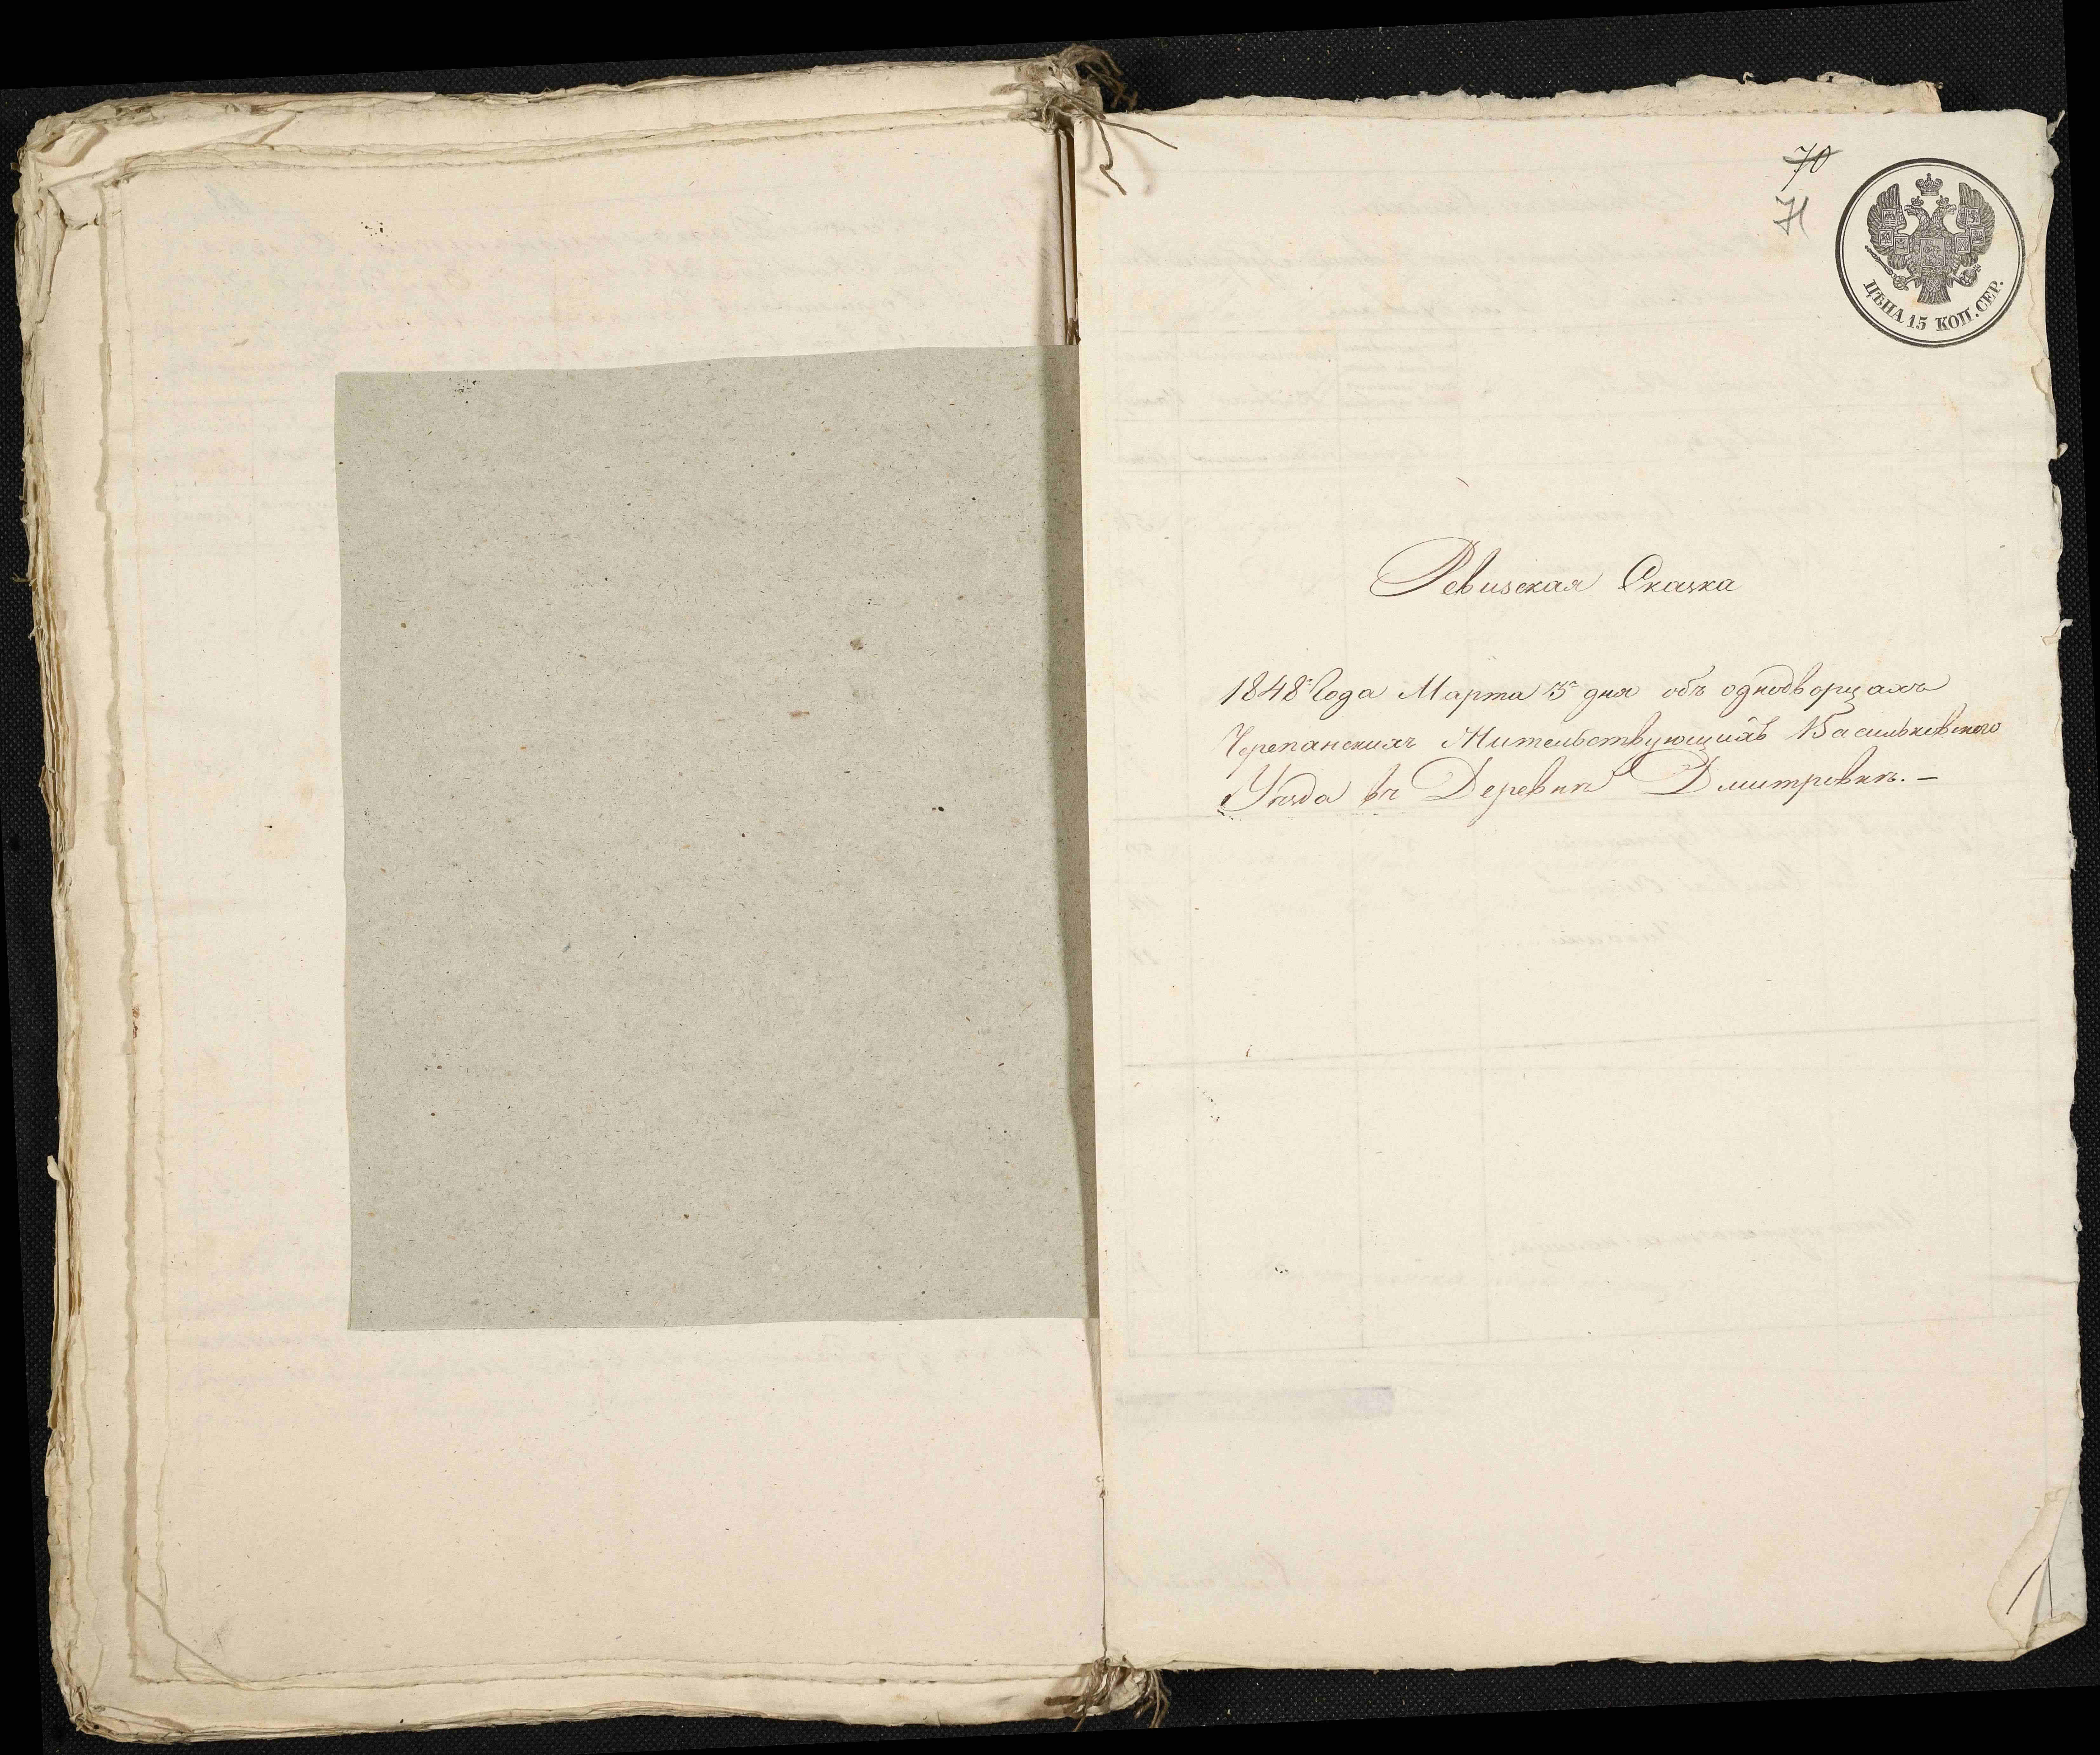 70
71
ЦѢНА 15 КОП. СЕР.
Ревизская Сказка
1848 Года Марта 3 дня объ однодворцахъ
Черепанскихъ Жительствующихъ Васильковского
Уѣзда въ Деревнѣ Дмитровкѣ. —